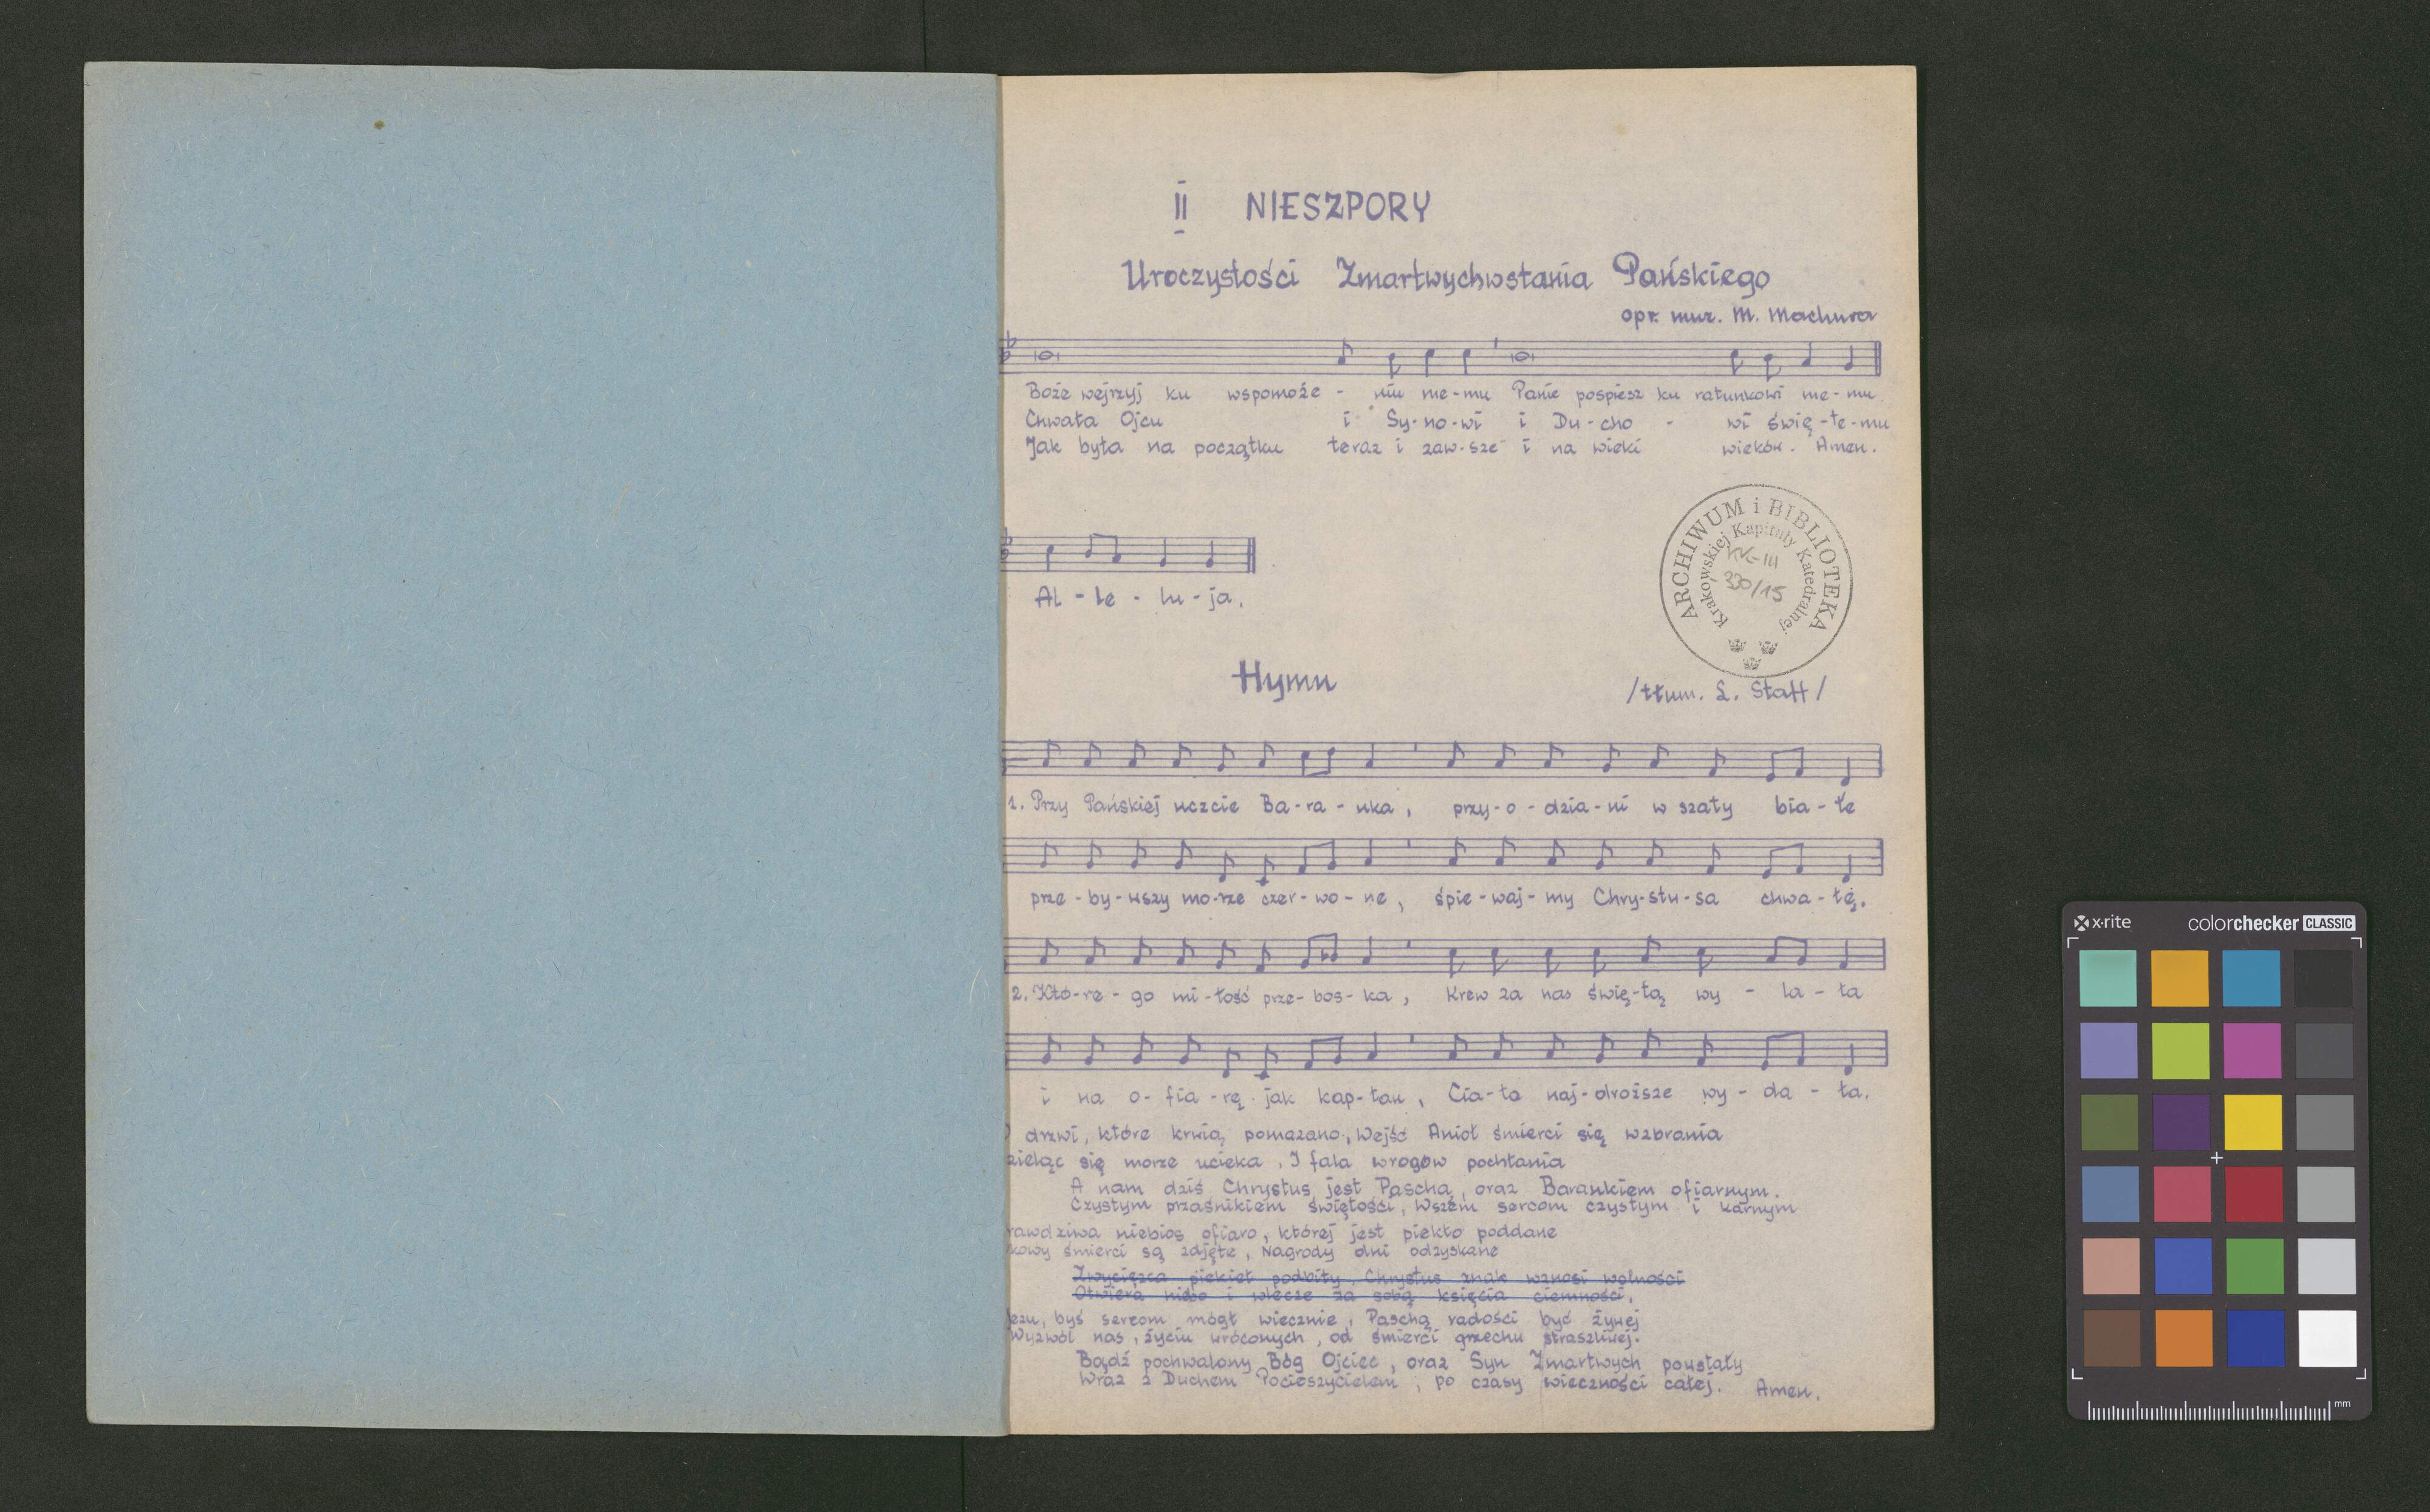 II NIESZPORY
Uroczystości Zmartwychwstania Pańskiego
opr. muz. M. Machura
Boże wejrzyj ku wspomoże - niu me-mu Panie pospiesz ku ratunkowi me-mu.
Chwała Ojcu i Sy-no-wi i Du-cho - wi świę-te-mu
Jak była na początku teraz i zaw-sze i na wieki wieków. Amen.
Al - le - lu - ja.
ARCHIWUM i BIBLIOTEKA
Krakowskiej Kapituły Katedralnej
KK-III
330/15
Hymn
/tłum. L. Staff/
1. Przy Pańskiej uczcie Ba-ra-nka, przy-o-dzia-ni w szaty bia-łe
prze-by-wszy mo-rze czer-wo-ne, śpie-waj-my Chry-stu-sa chwa-łę.
2. Któ-re-go mi-łość prze-bos-ka, Krew za nas świę-tą wy - la - ła
i na o-fia-rę jak kap-łan, Cia-ło naj-droższe wy - da - ła.
drzwi, które krwią pomazano, Wejść Anioł śmierci się wzbrania
zieląc się morze ucieka, I fala wrogów pochłania
A nam dziś Chrystus jest Paschą, oraz Barankiem ofiarnym.
Czystym przaśnikiem świętości, Wszem sercom czystym i karnym
rawdziwa niebios ofiaro, której jest piekło poddane
kowy śmierci są zdjęte, Nagrody dni odzyskane
Zwycięzca piekieł podbity, Chrystus znak wznosi wolności
Otwiera niebo i wlecze za sobą księcia ciemności.
ezu, byś sercom mógł wiecznie, Paschą radości być żywej
Wyzwól nas, życiu wróconych, od śmierci grzechu straszliwej.
Bądź pochwalony Bóg Ojciec, oraz Syn Zmartwych powstały
Wraz z Duchem Pocieszycielem, po czasy wieczności całej. Amen.
x-rite
colorchecker CLASSIC
mm